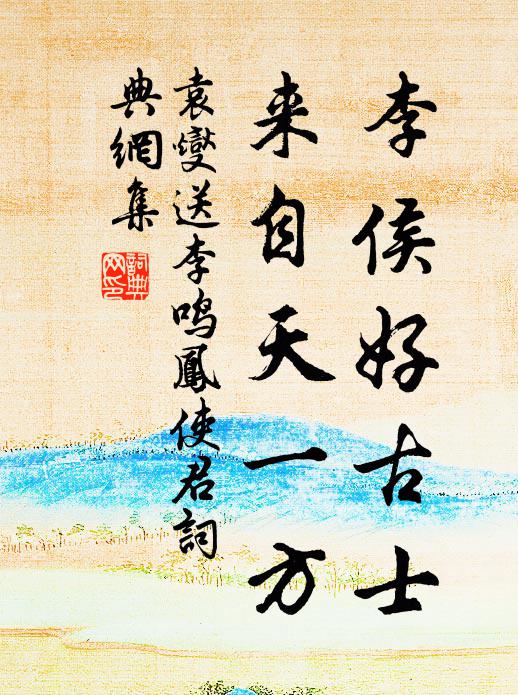 李侯好古士
来自天一方
袁燮送李鸣鳳使君詞
典網集
詞典网印